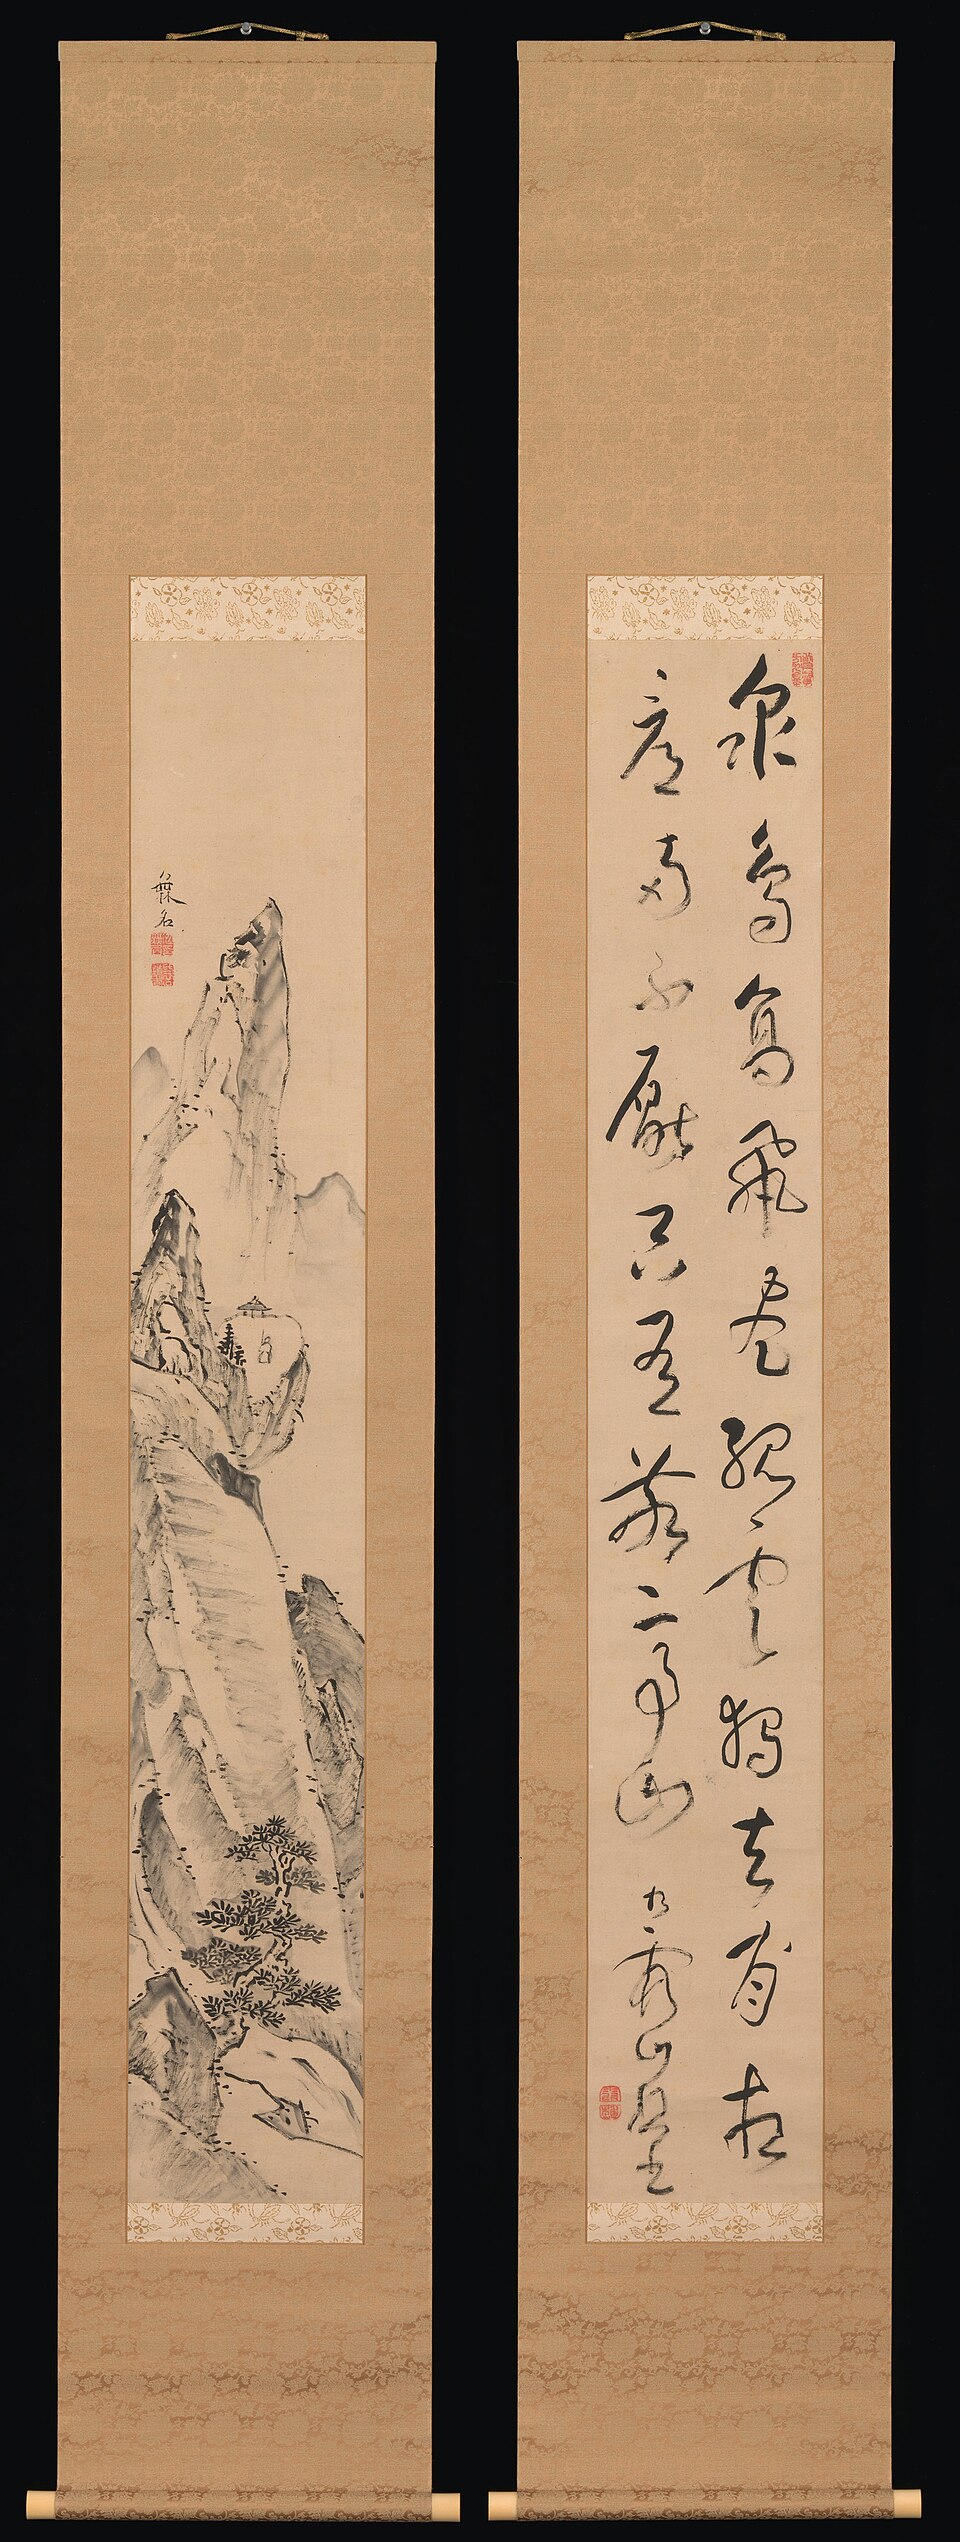 衆鳥高飛盡孤雲獨去閒相
看兩不厭只有敬亭山 九霞山
無名